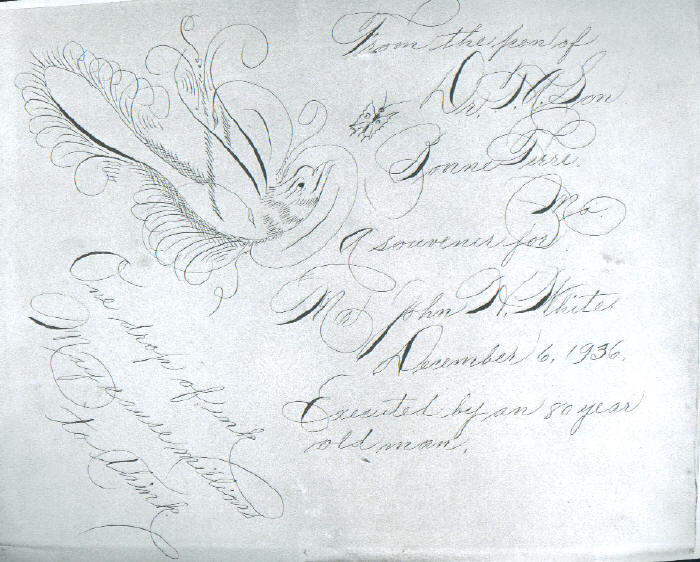 From the pen of
Dr. T. A. Son
Bonne Terre
Mo.
A souvenir for
Mr. John H. White
December 6, 1936.
Executed by an 80 year
old man.
One drop of ink
May cause millions
to think